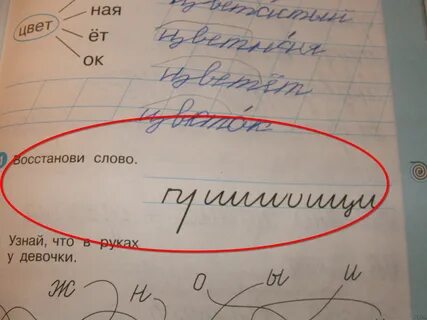 ная
цвет
ёт
цветная
ок
цветёт
цветок
Восстанови слово.
Узнай, что в руках
у девочки.
Ж Н О Ы И